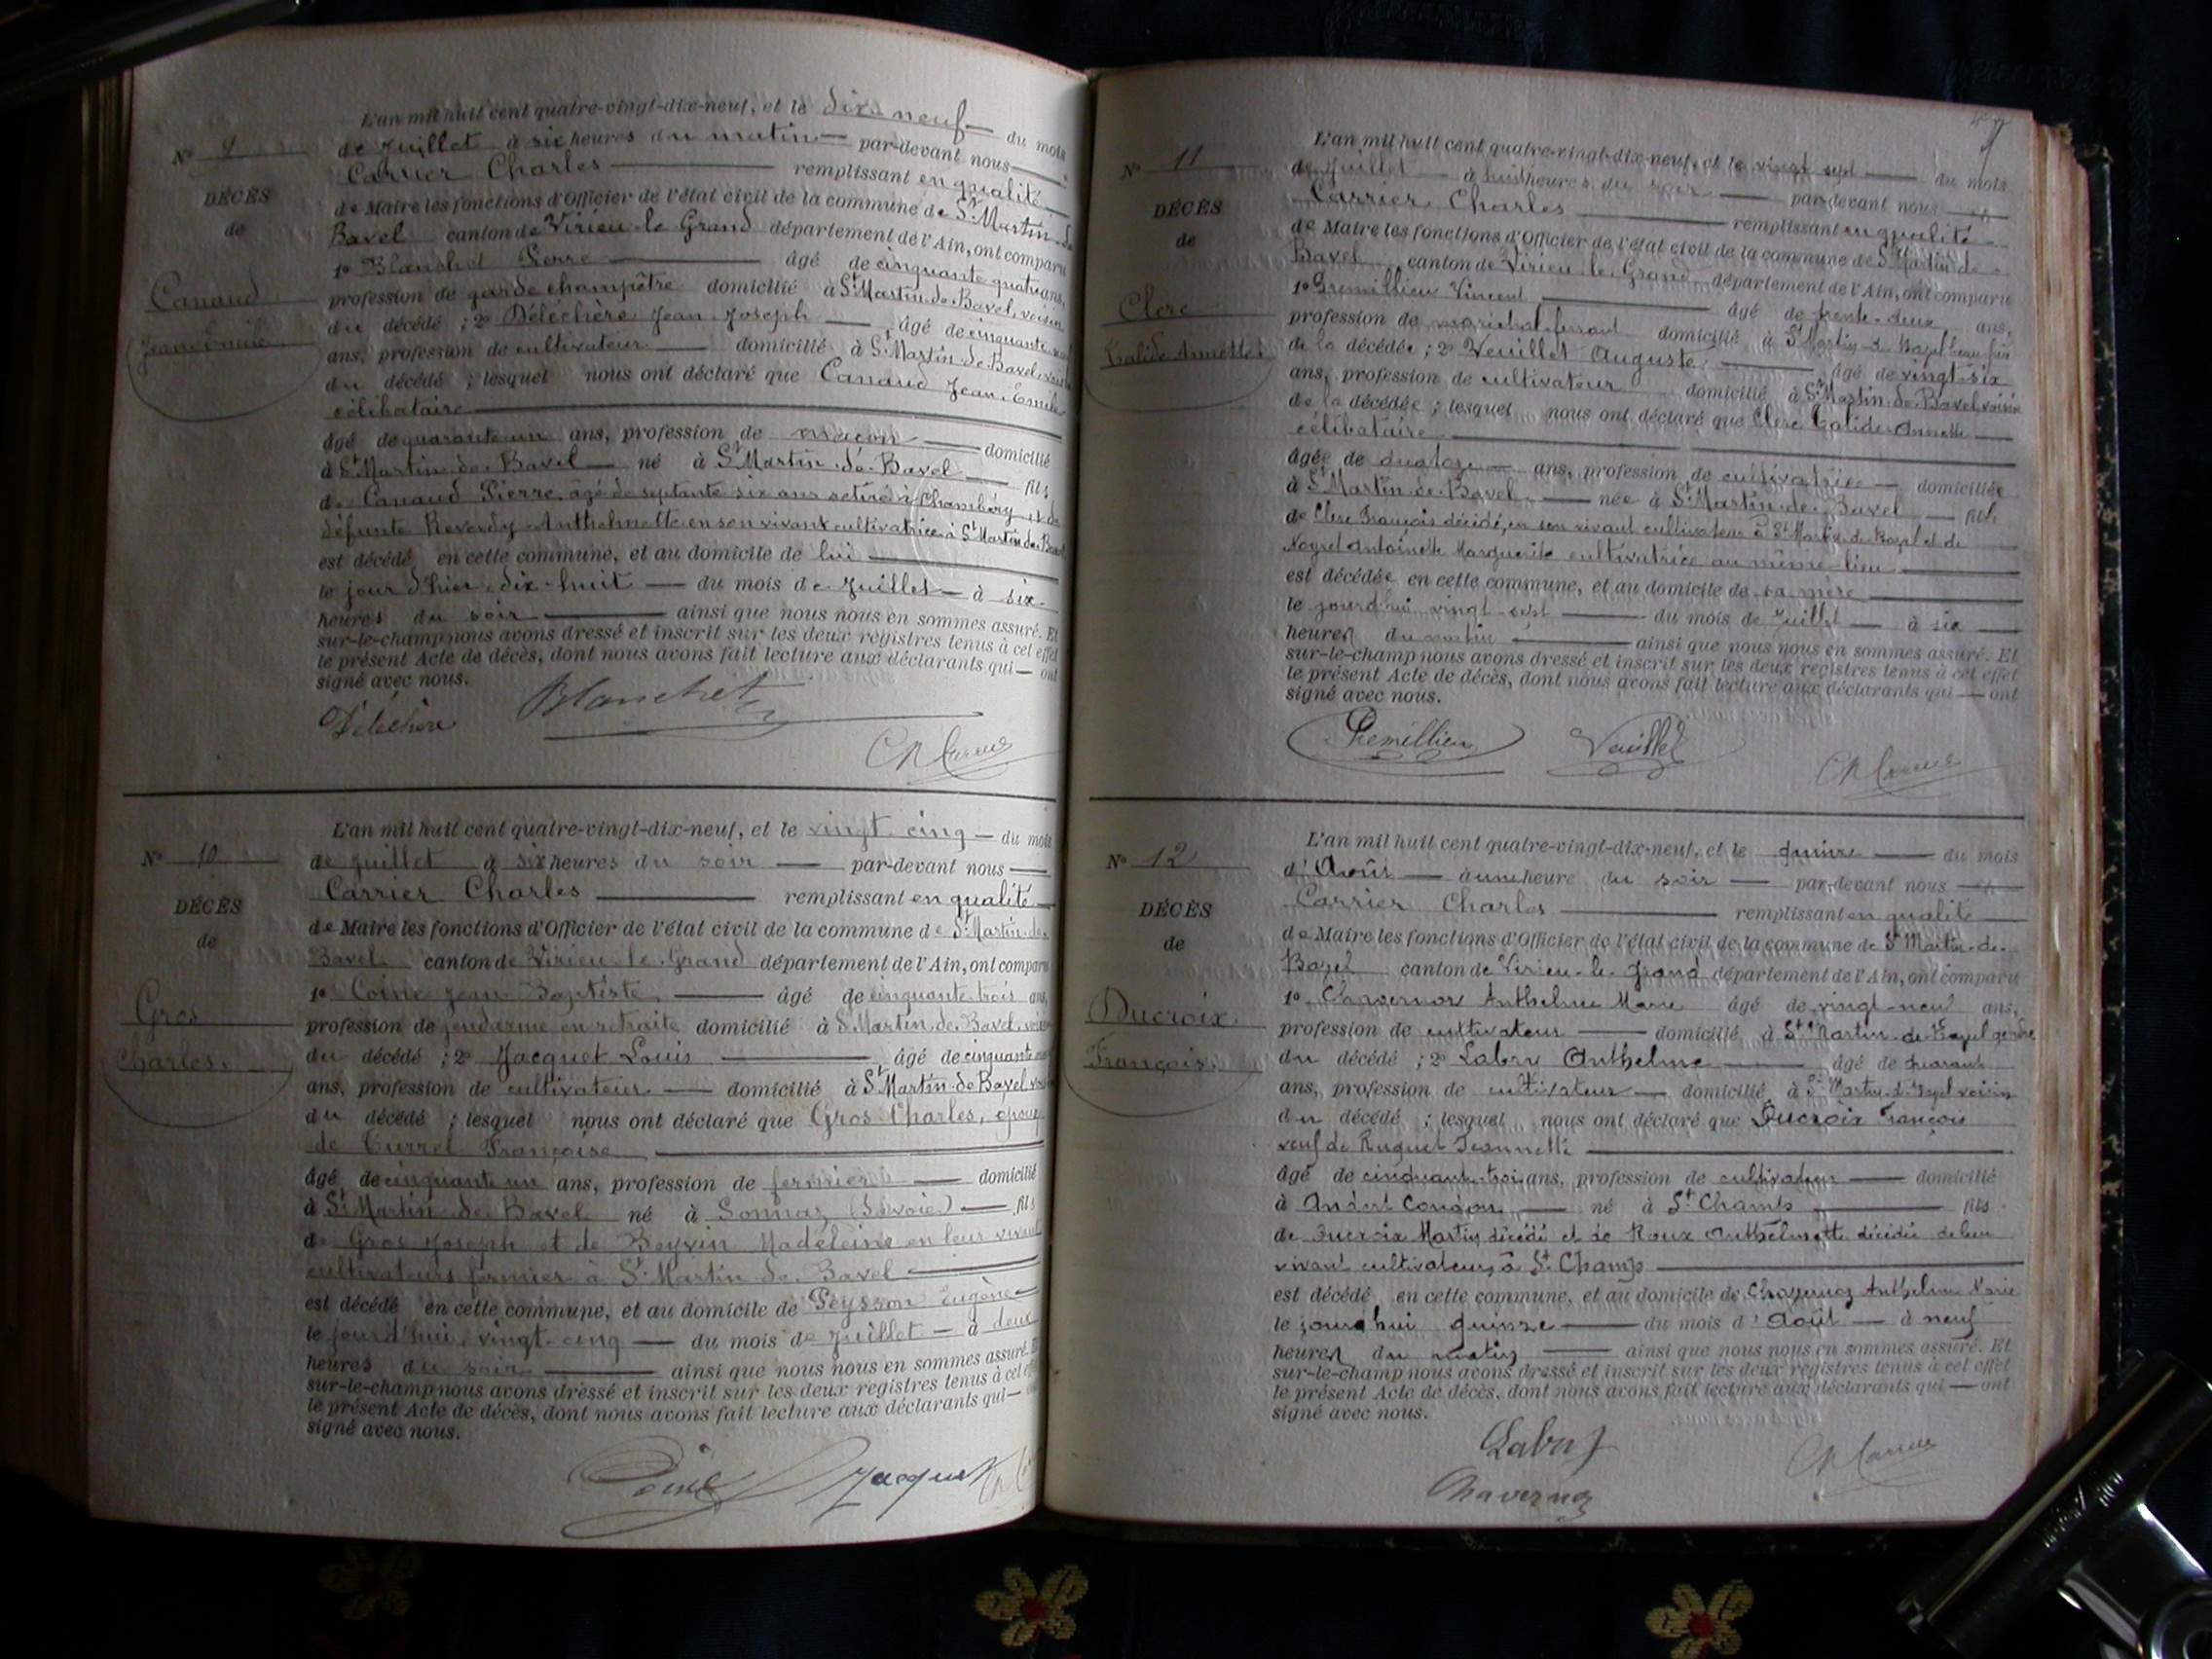 L'an mil huit cent quatre-vingt-dix-neuf, et le dix-neuf du mois
de Juillet à six heures du matin par-devant nous
Carrier Charles remplissant en qualité
de Maire les fonctions d'Officier de l'état civil de la commune de St Martin-de
Bavel canton de Virieu-le-Grand département de l'Ain, ont comparu
1º Blanchet Pierre âgé de cinquante quatre ans,
profession de garde champêtre domicilié à St Martin-de-Bavel, voisin
du décédé ; 2º Déléchère Jean Joseph âgé de cinquante
ans, profession de cultivateur domicilié à St Martin-de-Bavel, voisin
du décédé ; lesquel nous ont déclaré que Canaud Jean-Emile
célibataire
âgé de quarante un ans, profession de maçon domicilié
à St Martin-de-Bavel né à St Martin-de-Bavel fils
de Canaud Pierre, âgé de septante six ans retiré à Chambéry et de
défunte Reverdy Anthelmette en son vivant cultivatrice à St Martin de Bavel
est décédé en cette commune, et au domicile de lui
le jour d'hier, dix-huit du mois de Juillet à six
heures du soir ainsi que nous nous en sommes assuré. Et
sur-le-champ nous avons dressé et inscrit sur les deux registres tenus à cet effet
le présent Acte de décès, dont nous avons fait lecture aux déclarants qui ont
signé avec nous.
Déléchère Blanchet
Ch Carrier
Nº 9
DÉCÈS
de
Canaud
Jean-Emile
L'an mil huit cent quatre-vingt-dix-neuf, et le vingt-cinq du mois
de Juillet à six heures du soir par-devant nous
Carrier Charles remplissant en qualité
de Maire les fonctions d'Officier de l'état civil de la commune de St Martin-de-
Bavel canton de Virieu-le-Grand département de l'Ain, ont comparu
1º Coine Jean-Baptiste âgé de cinquante trois ans,
profession de gendarme en retraite domicilié à St Martin-de-Bavel, voisin
du décédé ; 2º Jacquet Louis âgé de cinquante
ans, profession de cultivateur domicilié à St Martin-de-Bavel voisin
du décédé ; lesquel nous ont déclaré que Gros Charles, époux
de Currel Françoise
âgé de cinquante un ans, profession de fermier domicilié
à St Martin-de-Bavel né à Sonnaz (Savoie) fils
de Gros Joseph et de Madeleine en leur vivant
cultivateurs fermier à St Martin-de-Bavel
est décédé en cette commune, et au domicile de Peysson Eugène
le jourd'hui, vingt-cinq du mois de Juillet à deux
heures du soir ainsi que nous nous en sommes assuré. Et
sur-le-champ nous avons dressé et inscrit sur les deux registres tenus à cet effet
le présent Acte de décès, dont nous avons fait lecture aux déclarants qui
signé avec nous.
Coine Jacquet
Nº 10
DÉCÈS
de
Gros
Charles.
L'an mil huit cent quatre-vingt-dix-neuf, et le vingt sept du mois
de Juillet à huit heures du soir par-devant nous
Carrier Charles remplissant en qualité
de Maire les fonctions d'Officier de l'état civil de la commune de St Martin-de-
Bavel canton de Virieu-le-Grand département de l'Ain, ont comparu
1º Gremillieu Vincent âgé de trente-deux ans,
profession de maréchal-ferrant domicilié à St Martin-de-Bavel beau-frère
de la décédée ; 2º Veuillet Auguste âgé de vingt-six
ans, profession de cultivateur domicilié à St Martin-de-Bavel voisin
de la décédée ; lesquel nous ont déclaré que Clerc Annette
célibataire
âgée de quatorze ans, profession de cultivatrice domiciliée
à St Martin-de-Bavel née à St Martin-de-Bavel fille
de Clerc François décédé, en son vivant cultivateur à St Martin-de-Bavel et de
Antoinette Marguerite cultivatrice au même lieu
est décédée en cette commune, et au domicile de sa mère
le jourd'hui vingt-sept du mois de Juillet à six
heures du matin ainsi que nous nous en sommes assuré. Et
sur-le-champ nous avons dressé et inscrit sur les deux registres tenus à cet effet
le présent Acte de décès, dont nous avons fait lecture aux déclarants qui ont
signé avec nous.
Gremillieu Veuillet Ch Carrier
Nº 11
DÉCÈS
de
Clerc
Annette
L'an mil huit cent quatre-vingt-dix-neuf, et le quinze du mois
d'Août à une heure du soir par-devant nous
Carrier Charles remplissant en qualité
de Maire les fonctions d'Officier de l'état civil de la commune de St Martin-de-
Bavel canton de Virieu-le-Grand département de l'Ain, ont comparu
1º Chavernoz Anthelme Marie âgé de vingt-neuf ans,
profession de cultivateur domicilié à St Martin-de-Bavel gendre
du décédé ; 2º Labry Anthelme âgé de quarante
ans, profession de cultivateur domicilié à St Martin-de-Bavel voisin
du décédé ; lesquel nous ont déclaré que Ducroix François
veuf de Ruguet Jeannette
âgé de cinquante-trois ans, profession de cultivateur domicilié
à Andert Condon né à St Champ fils
de Ducroix Martin décédé et de Roux Anthelmette décédée de leur
vivant cultivateurs à St Champ
est décédé en cette commune, et au domicile de Chavernoz Anthelme Marie
le jourd'hui quinze du mois d'Août à neuf
heures du matin ainsi que nous nous en sommes assuré. Et
sur-le-champ nous avons dressé et inscrit sur les deux registres tenus à cet effet
le présent Acte de décès, dont nous avons fait lecture aux déclarants qui ont
signé avec nous.
Labry Ch Carrier
Chavernoz
Nº 12
DÉCÈS
de
Ducroix
François.